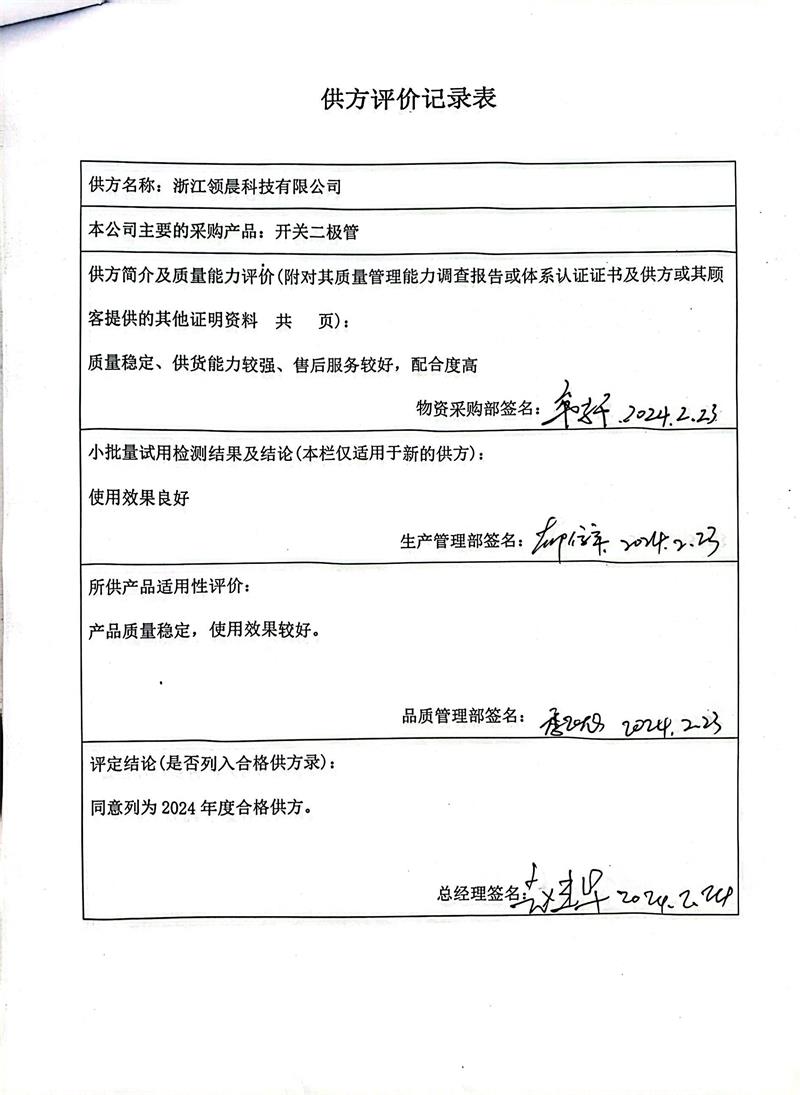 供方评价记录表
供方名称：浙江领晨科技有限公司
本公司主要的采购产品：开关二极管
供方简介及质量能力评价(附对其质量管理能力调查报告或体系认证证书及供方或其顾
客提供的其他证明资料 共 页)：
质量稳定、供货能力较强、售后服务较好，配合度高
物资采购部签名： 2024.2.23
小批量试用检测结果及结论(本栏仅适用于新的供方)：
使用效果良好
生产管理部签名： 2024.2.23
所供产品适用性评价：
产品质量稳定，使用效果较好。
品质管理部签名： 2024.2.23
评定结论(是否列入合格供方录)：
同意列为2024年度合格供方。
总经理签名： 2024.2.24